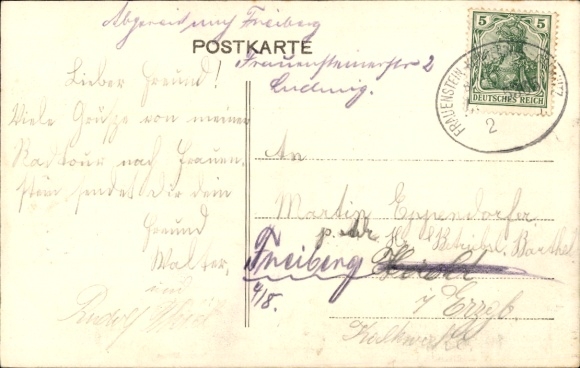 Abgereist nach Freiberg
POSTKARTE
Frauensteinerstr 2
Ludwig.
5 5
DEUTSCHES REICH
FRAUENSTEIN
2
Lieber Freund!
Viele Grüße von meiner
Radtour nach Frauen-
stein sendet Dir dein
Freund
Walter,
und
Rudolf
An
Martin Eppendorfer
p. Adr. H. Barthel
Freiberg
4/8.
i/ Erzgb.
Kalkwerke